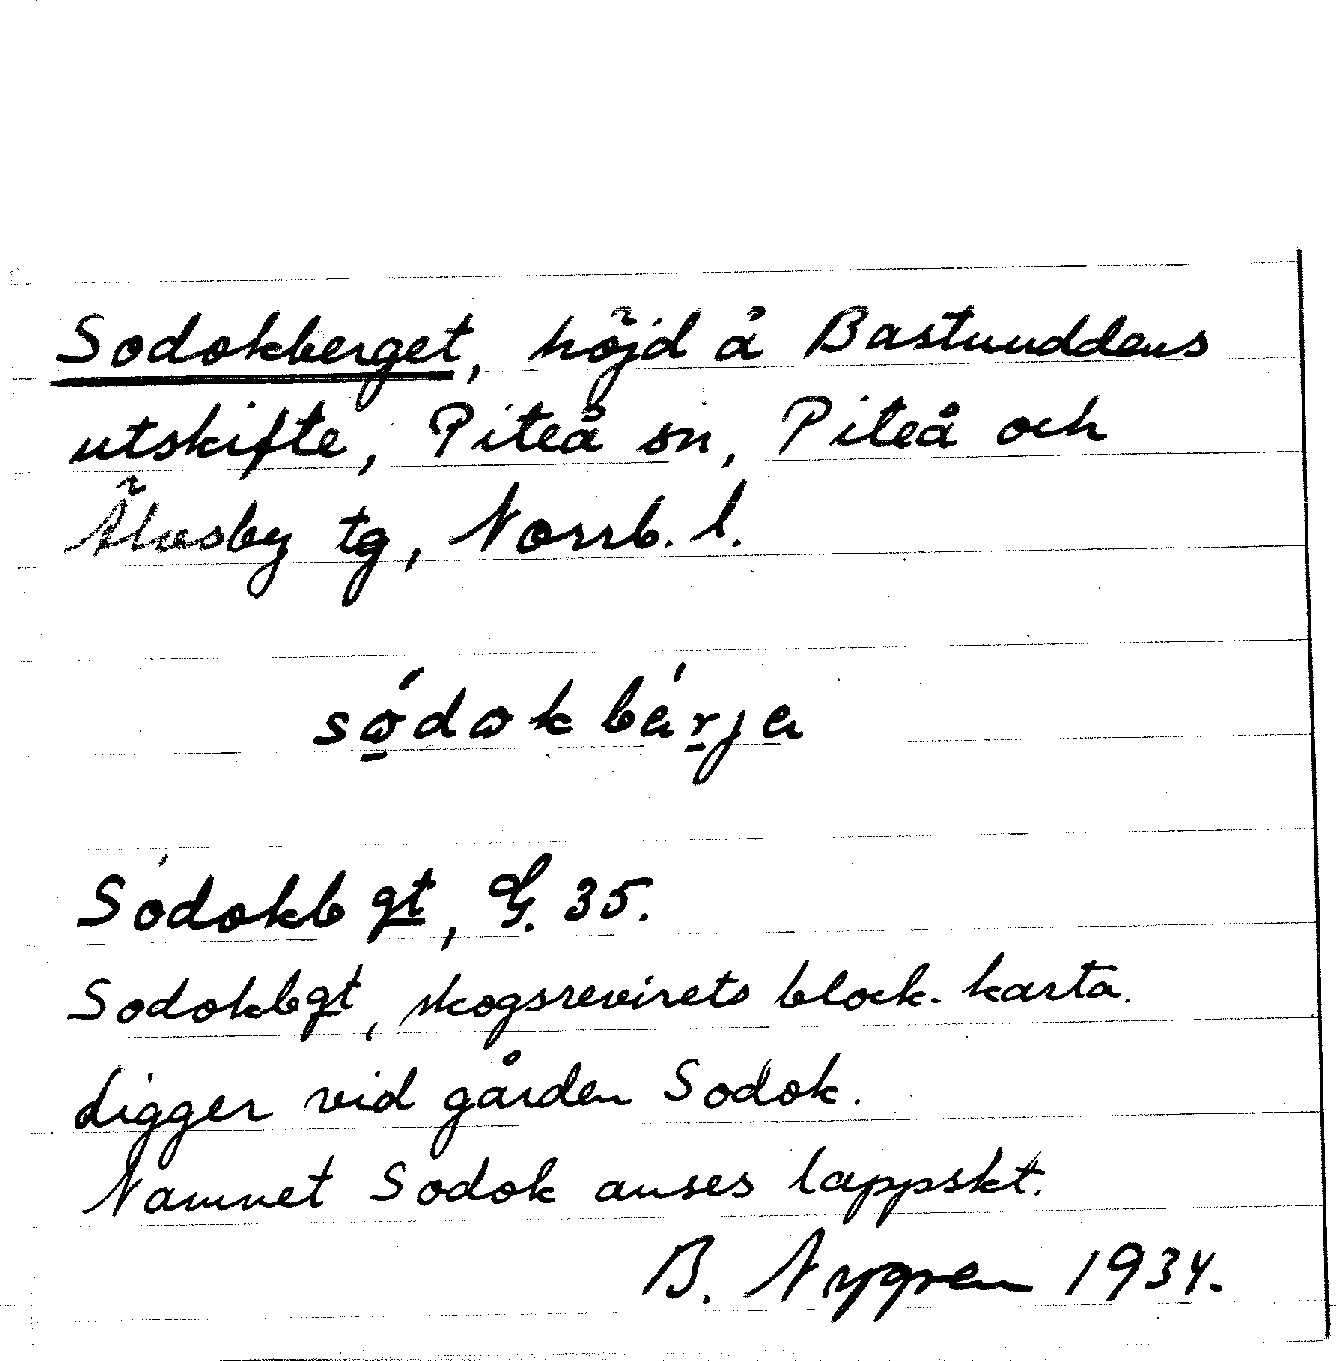 Sodokberget, höjd å Bastuuddens
utskifte, Piteå sn, Piteå och
Älvsby tg, Norrb. l.
só̱dokbá̱rja
Sodokbgt, G. 35.
Sodokbgt, skogsrevirets block-karta.
Ligger vid gården Sodok.
Namnet Sodok anses lappskt.
B. Nygren 1934.